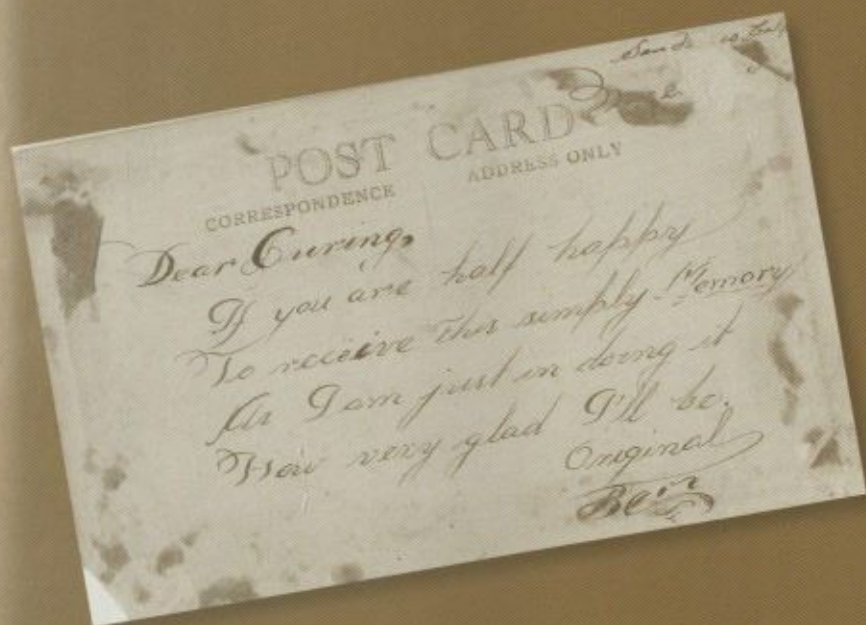 POST CARD
CORRESPONDENCE ADDRESS ONLY
Dear Curing,
If you are half happy
To receive this simply Memory
As I am just in doing it
How very glad I'll be.
Original
Ben